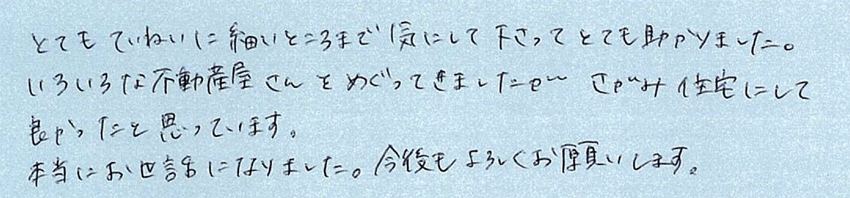 とてもていねいに細いところまで気にして下さってとても助かりました。
いろいろな不動産屋さんをめぐってきましたが さがみ住宅にして
良かったと思っています。
本当にお世話になりました。今後もよろしくお願いします。